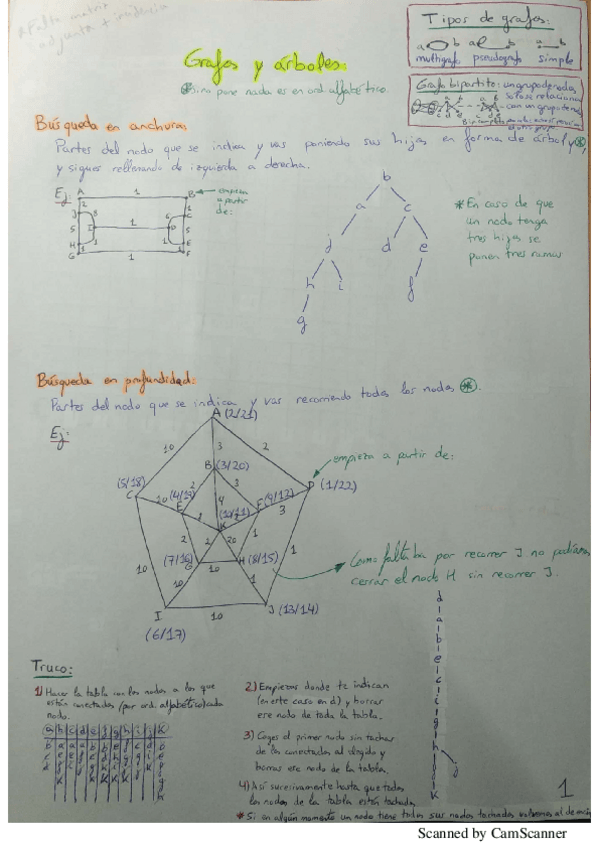 *Falta matriz
adjunta + incidencia
Tipos de grafos:
a b a b a b
multigrafo pseudografo simple
Grafos y árboles:
*Si no pone nada es en ord. alfabético.
Grafo bipartito: un grupo de nodos
solo se relaciona
con un grupo de
Búsqueda en anchura:
Partes del nodo que se indica y vas poniendo sus hijos en forma de árbol y *,
y sigues rellenando de izquierda a derecha.
Ej:
A 1 B
empieza
a partir
de:
2
J 8 6 C
5 I 1 D 5
H 3 1 E
G 1 F
b
a c
j d e
h i f
g
*En caso de que
un nodo tenga
tres hijos se
ponen tres ramas
Búsqueda en profundidad:
Partes del nodo que se indica y vas recorriendo todos los nodos *.
Ej:
A (2/21)
10 3 2
B (3/20)
empieza a partir de:
(5/18)
C 10 (4/19) 2 4 3 (9/12) D (1/22)
E F 3
K (10/11)
2 2 20 1
(7/16) G 10 H (8/15)
10 10 1 1
I 10 J (13/14)
(6/17)
Como faltaba por recorrer J no podíamos
cerrar el nodo H sin recorrer J.
d
a
b
e
c
i
g
h
f j
k
Truco:
1) Hacer la tabla con los nodos a los que
están conectados (por ord. alfabético) cada
nodo.
a b c d e f g h i j k
2) Empiezas donde te indican
(en este caso en d) y borras
ese nodo de toda la tabla.
3) Coges el primer nodo sin tachar
de los conectados al elegido y
borras ese nodo de la tabla.
4) Así sucesivamente hasta que todos
los nodos de la tabla estén tachados.
* Si en algún momento un nodo tiene todos sus nodos tachados volvemos al
1
Scanned by CamScanner